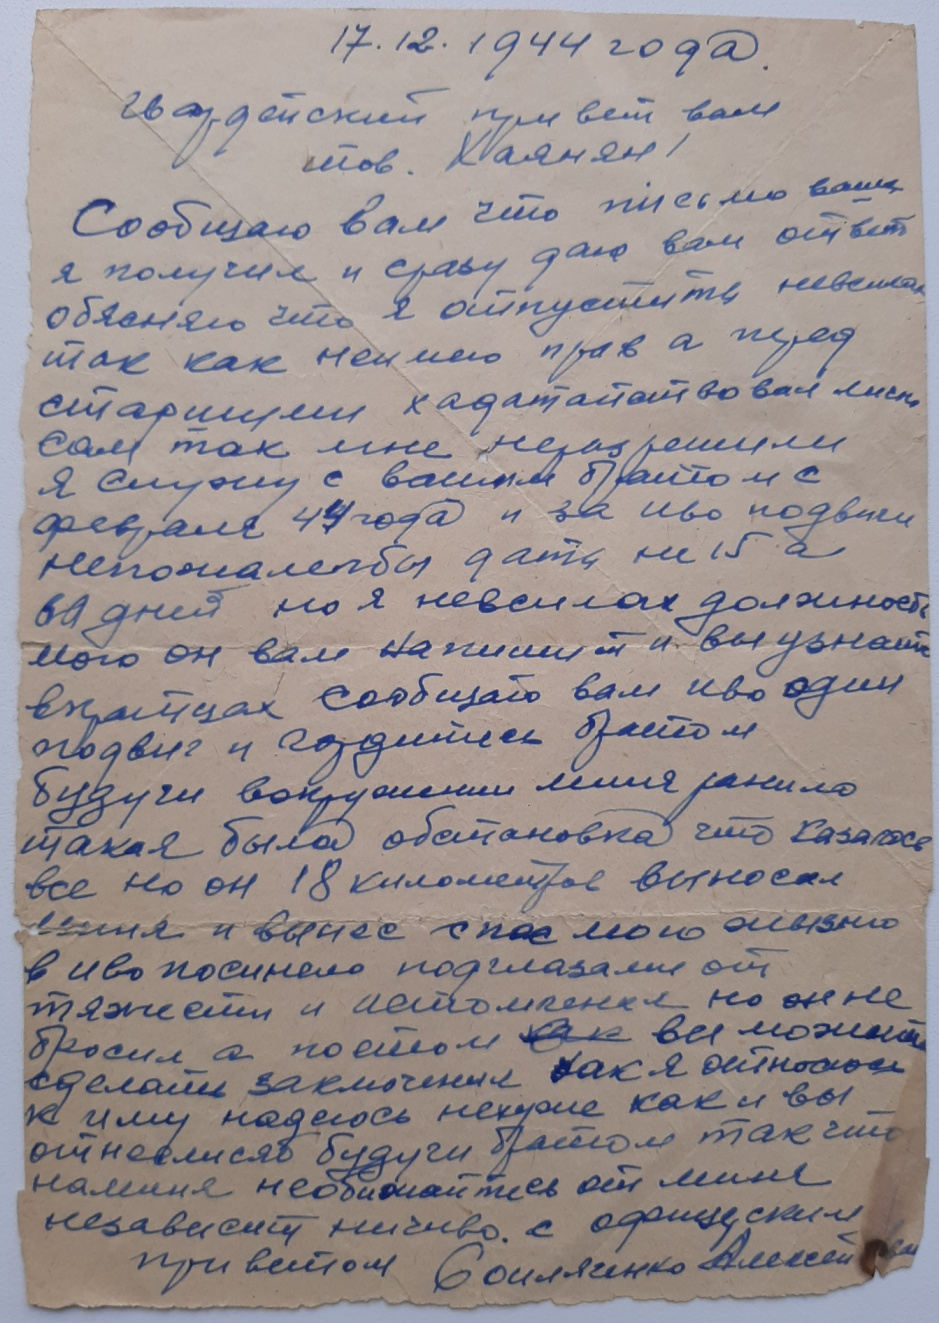 17.12.1944 года.
Гвардейский привет вам
тов. Хаянян!
Сообщаю вам что письмо ваше
я получил и сразу даю вам ответ
обясняю что я отпустить невсилах
так как неимею прав а перед
старшими хадатайствовал
сам так мне неразрешили
я служу с вашим братом с
февраля 44 года и за иво подвиги
непожалелбы дать не 15 а
дней но я невсилах должность
мою он вам напишит и вы узнаите
вкратцах сообщаю вам иво один
подвиг и гордитесь братом
будучи вокружении миня ранило
такая была обстановка что казалось
все но он 18 километров выносил
миня и вынес спас мою жизню
в иво посинело подглазами от
тяжести и истомления но он не
бросил а потом вы можите
сделать заключения как я отношюсь
к иму надеюсь нехуже как и вы
отнеслисяб будучи братом так что
наминя необижайтесь от миня
независит ничиво. с офицерским
приветом Алексей